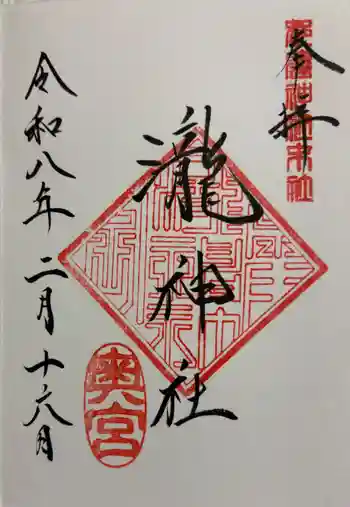 都農神社末社
奉拝
瀧神社
奥宮
令和八年二月十六日